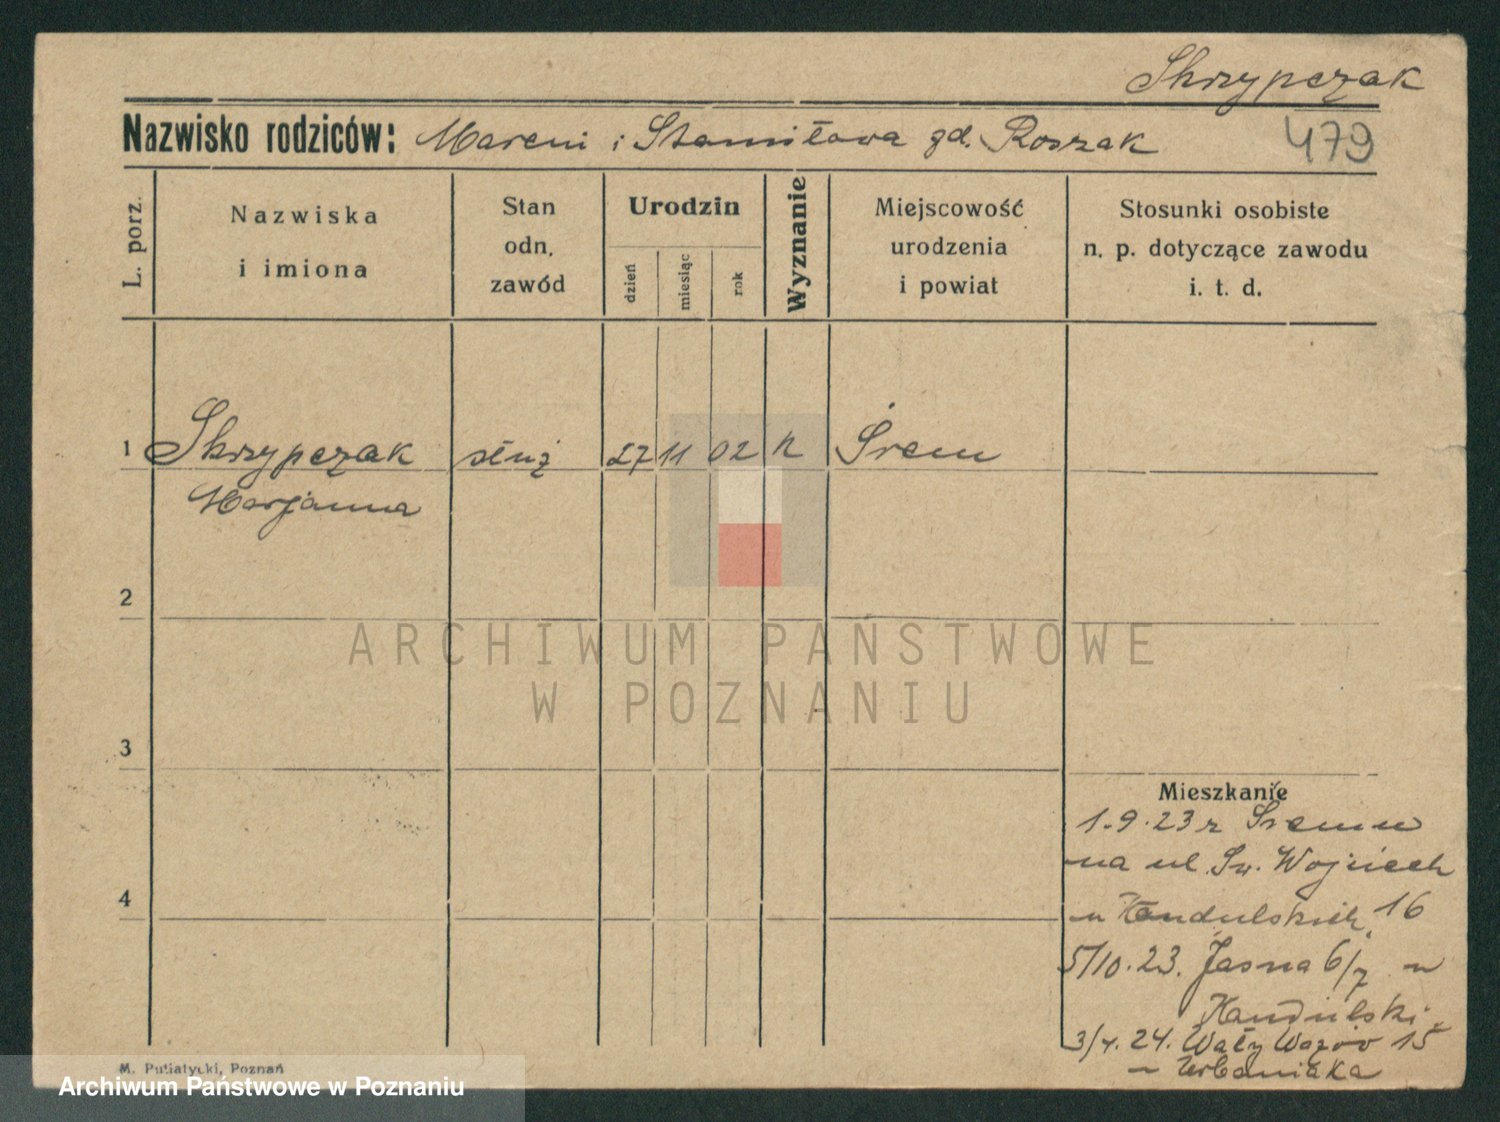 Skrzypczak
Nazwisko rodziców: Marcin i Stanisława gd. Roszak
479
L. porz.
Nazwiska
i imiona
Stan
odn.
zawód
Urodzin
dzień
miesiąc
rok
Wyznanie
Miejscowość
urodzenia
i powiat
Stosunki osobiste
n. p. dotyczące zawodu
i. t. d.
1 Skrzypczak służ 27 11 02 k Śrem
Marjanna
2
3
4
Mieszkanie
1.9.23 z Śremu
na ul. Św. Wojciech
u Kandulskich 16
5/10.23. Jasna 6/7 u
Kandulski
3/4.24. Wały Wazów 15
u Urbaniaka
M. Putiatycki, Poznań
ARCHIWUM PAŃSTWOWE
W POZNANIU
Archiwum Państwowe w Poznaniu